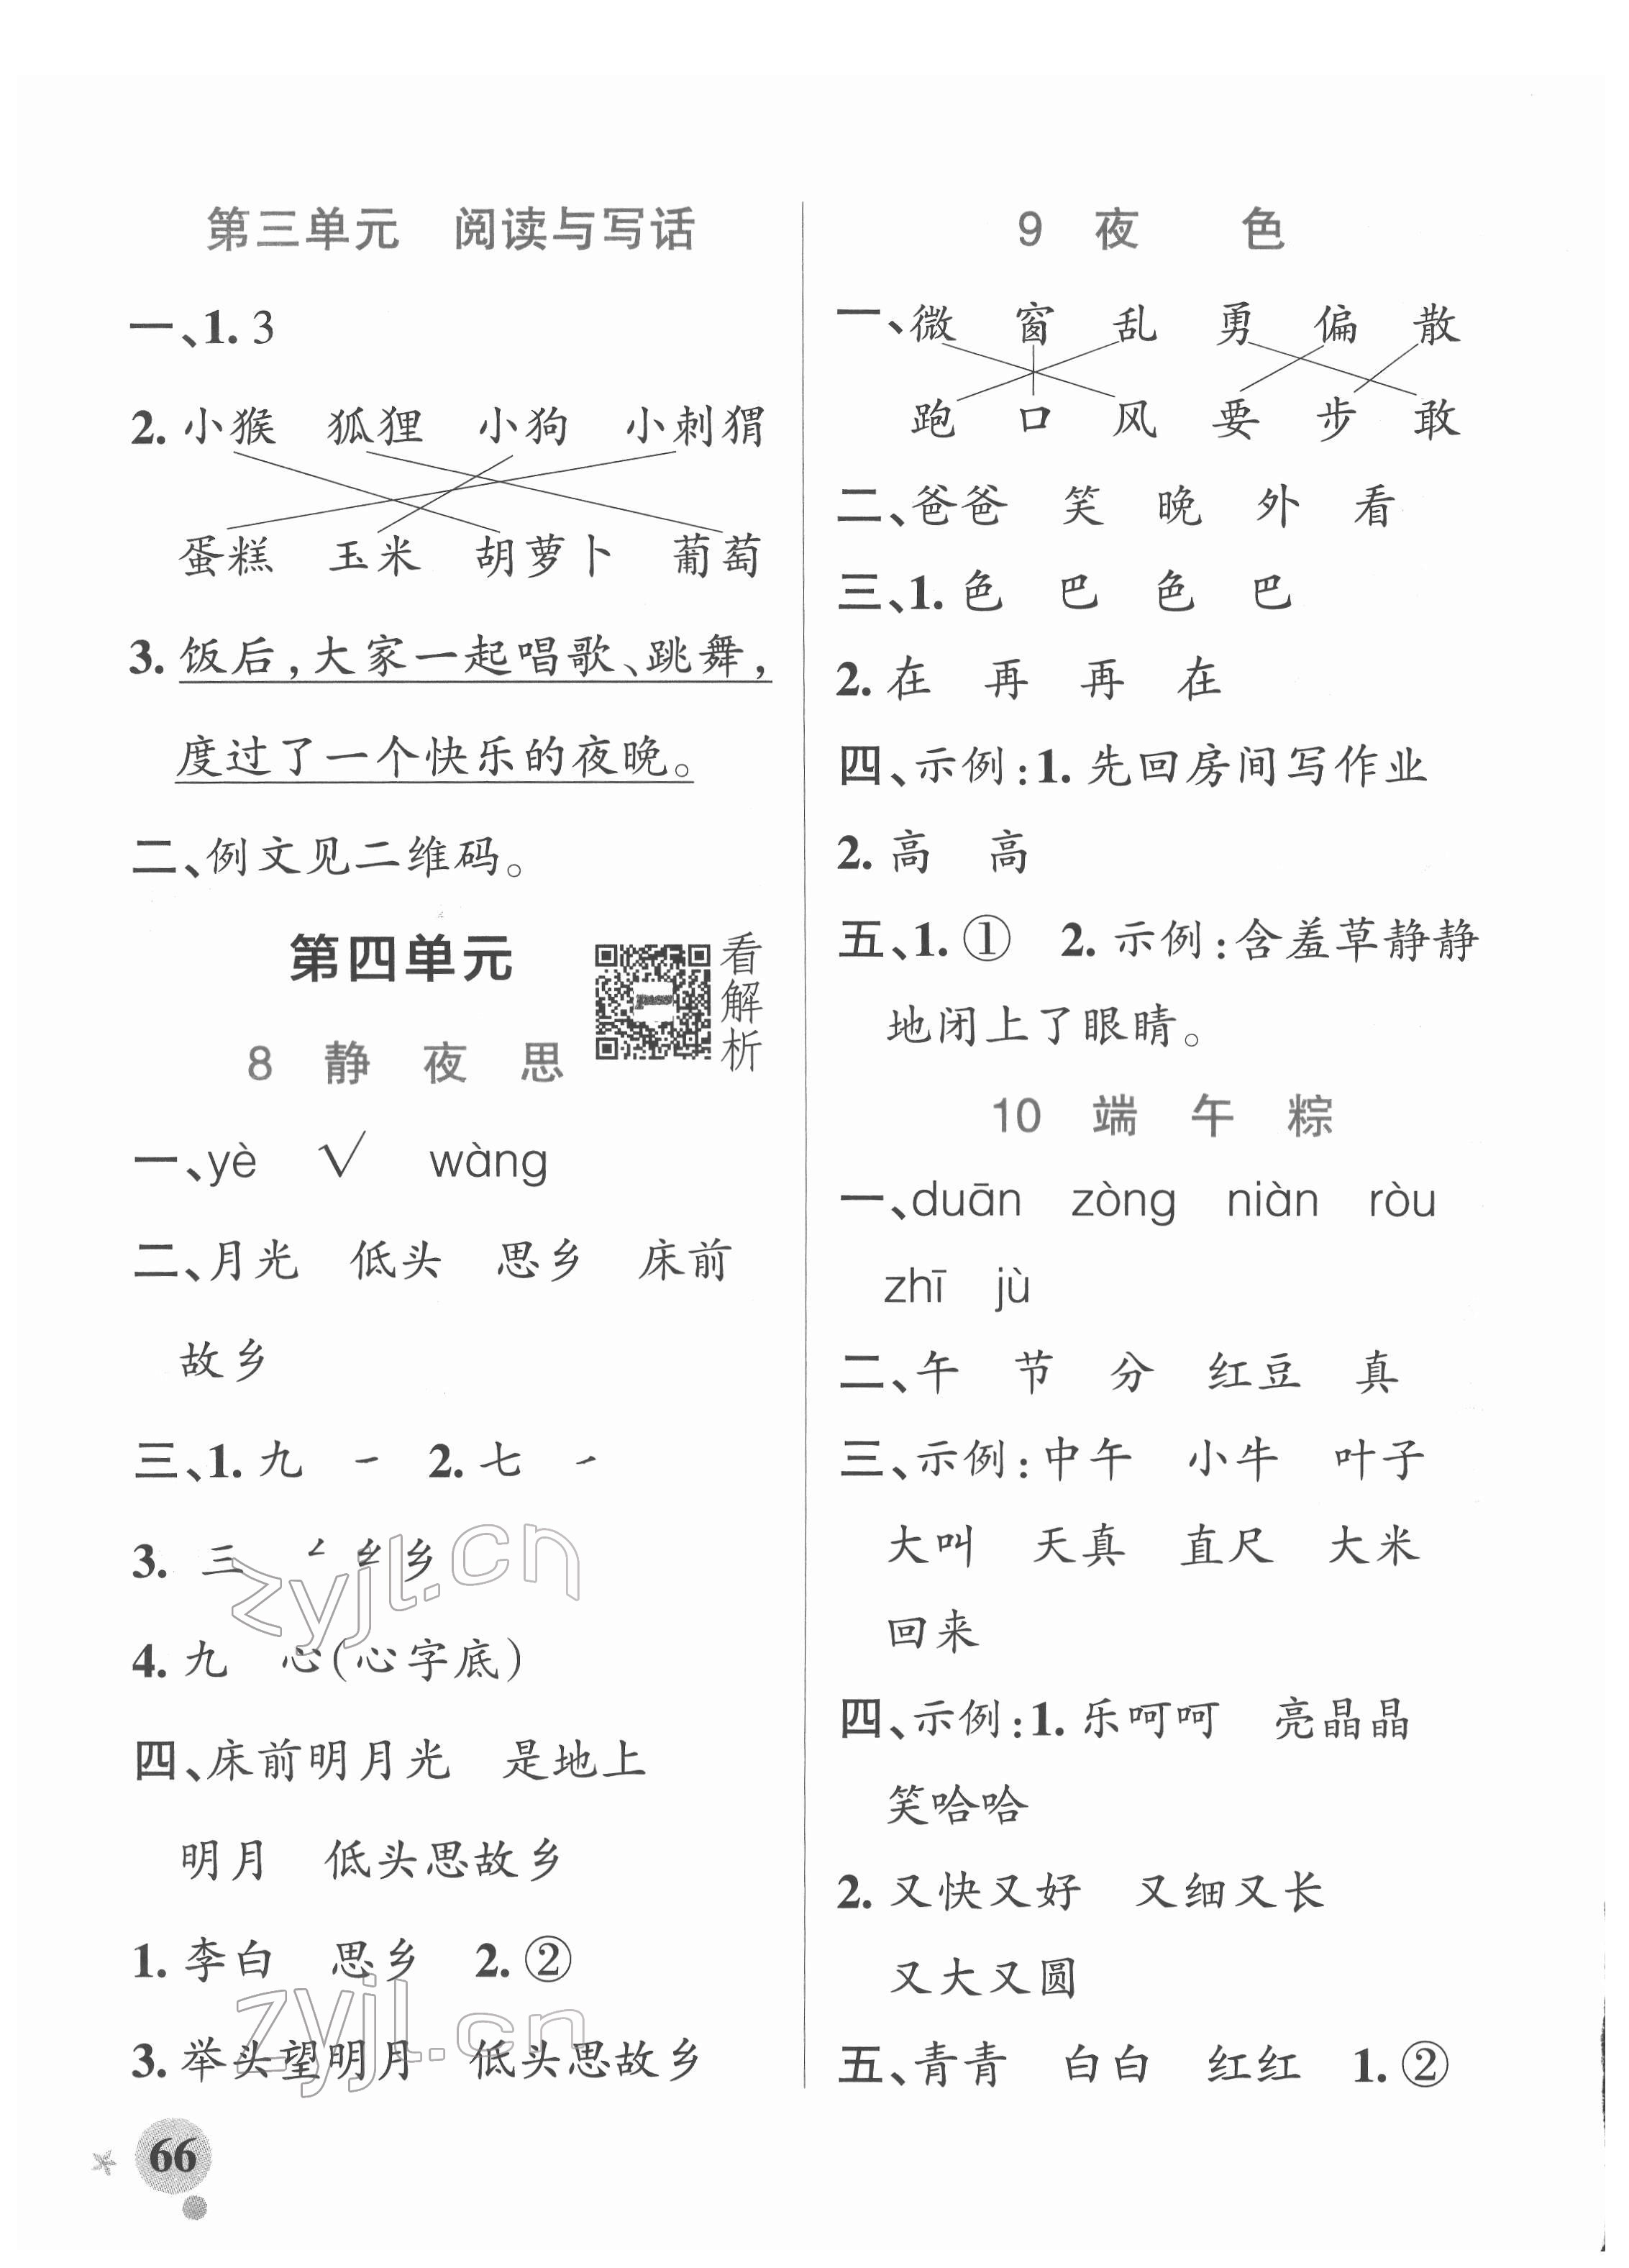 第三单元 阅读与写话
一、1. 3
2. 小猴 狐狸 小狗 小刺猬
蛋糕 玉米 胡萝卜 葡萄
3. 饭后,大家一起唱歌、跳舞,
度过了一个快乐的夜晚。
二、例文见二维码。
第四单元
看解析
8 静夜思
一、yè √ wàng
二、月光 低头 思乡 床前
故乡
三、1. 九 ㇀ 2. 七 ㇀
3. 三 𠃋 纟 乡
4. 九 心(心字底)
四、床前明月光 是地上
明月 低头思故乡
1. 李白 思乡 2. ②
3. 举头望明月 低头思故乡
66
9 夜 色
一、微 窗 乱 勇 偏 散
跑 口 风 要 步 敢
二、爸爸 笑 晚 外 看
三、1. 色 巴 色 巴
2. 在 再 再 在
四、示例:1. 先回房间写作业
2. 高 高
五、1. ① 2. 示例:含羞草静静
地闭上了眼睛。
10 端午粽
一、duān zòng niàn ròu
zhī jù
二、午 节 分 红豆 真
三、示例:中午 小牛 叶子
大叫 天真 直尺 大米
回来
四、示例:1. 乐呵呵 亮晶晶
笑哈哈
2. 又快又好 又细又长
又大又圆
五、青青 白白 红红 1. ②
zyjl.cn
zyjl.cn